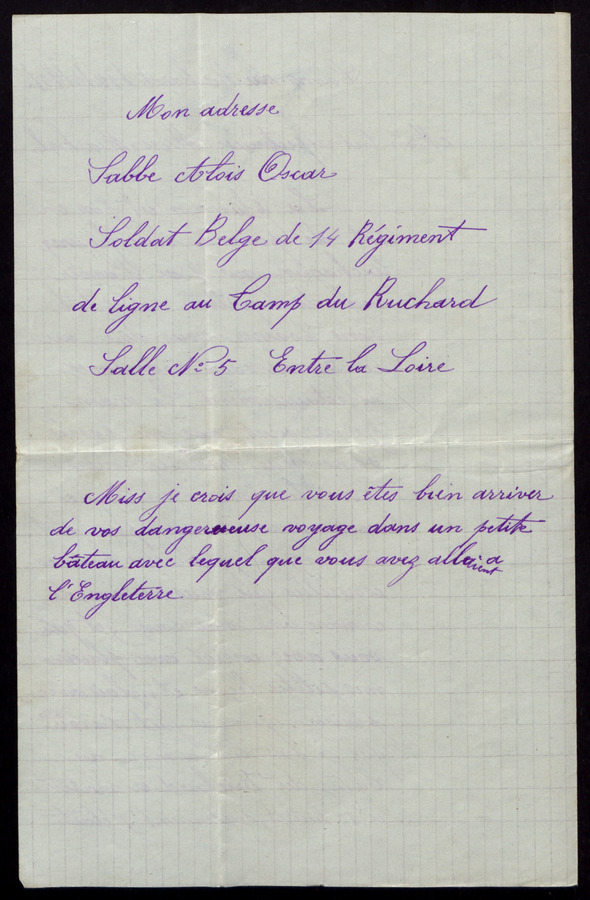 Mon adresse
Sabbe Alois Oscar
Soldat Belge de 14 Régiment
de ligne au Camp du Ruchard
Salle No 5 Entre la Loire
Miss je crois que vous êtes bien arriver
de vos dangereuse voyage dans un petite
bâteau avec lequel que vous avez allaient a
l'Engleterre.